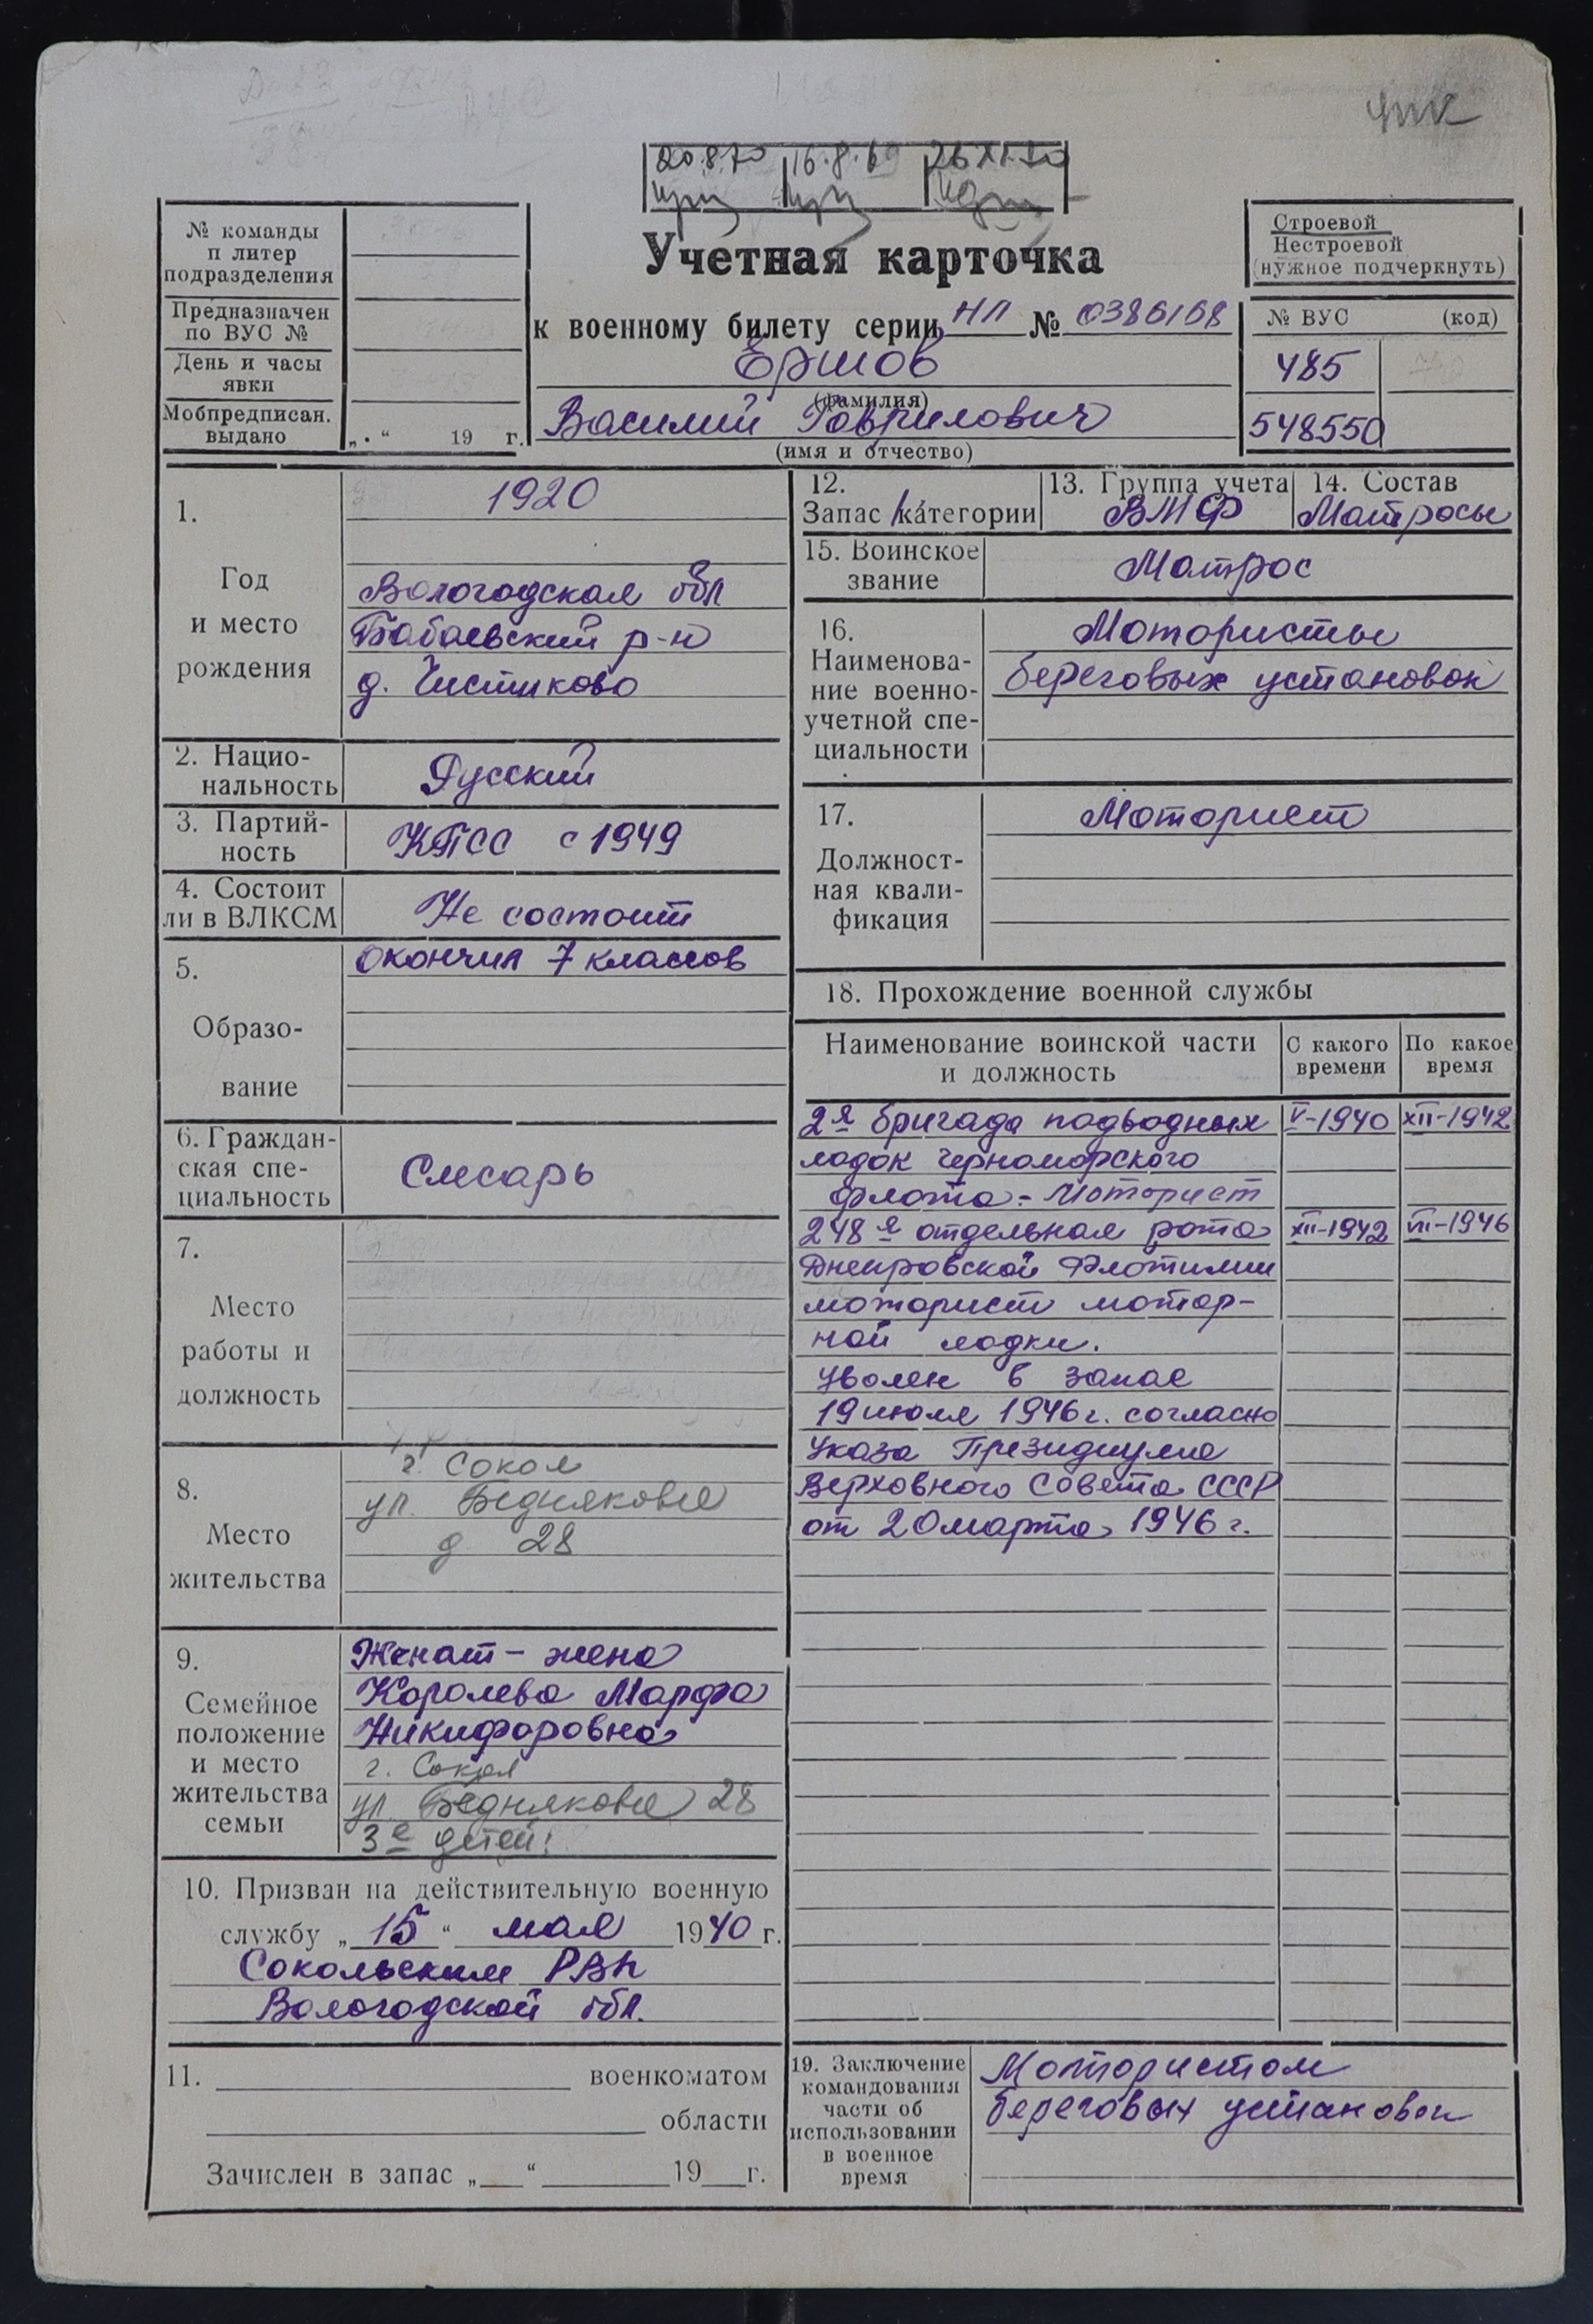 упк
20.8.70 16.8.69 26 XI.70
Учетная карточка
к военному билету серии НЛ № 0386168
Ершов
(фамилия)
Василий Гаврилович
(имя и отчество)
№ команды
п литер
подразделения
Предназначен
по ВУС №
День и часы
явки
Мобпредписан.
выдано
„ . “ 19 г.
Строевой
Нестроевой
(нужное подчеркнуть)
№ ВУС (код)
485
548550
1.
Год
и место
рождения
1920
Вологодская обл
Бабаевский р-н
д. Чистиково
2. Нацио-
нальность
Русский
3. Партий-
ность
КПСС с 1949
4. Состоит
ли в ВЛКСМ
Не состоит
5.
Образо-
вание
окончил 7 классов
6. Граждан-
ская спе-
циальность
Слесарь
7.
Место
работы и
должность
8.
Место
жительства
г. Сокол
ул. Бедняковая
д 28
9.
Семейное
положение
и место
жительства
семьи
Женат - жена
Королева Марфа
Никифоровна
г. Сокол
ул. Бедняковая 28
3е детей:
10. Призван на действительную военную
службу „ 15 “ мая 1940 г.
Сокольским РВК
Вологодской обл.
11. военкоматом
области
Зачислен в запас „ “ 19 г.
12.
Запас 1 категории
13. Группа учета
ВМФ
14. Состав
Матросы
15. Воинское
звание
Матрос
16.
Наименова-
ние военно-
учетной спе-
циальности
Мотористы
береговых установок
17.
Должност-
ная квали-
фикация
Моторист
18. Прохождение военной службы
Наименование воинской части
и должность
С какого
времени
По какое
время
2я бригада подводных V-1940 XII-1942
лодок Черноморского
флота - Моторист
248я отдельная рота XII-1942 VII-1946
Днепровской Флотилии
моторист мотор-
ной лодки.
Уволен в запас
19 июля 1946 г. согласно
Указа Президиума
Верховного Совета СССР
от 20 марта 1946 г.
19. Заключение
командования
части об
использовании
в военное
время
Мотористом
береговых установок